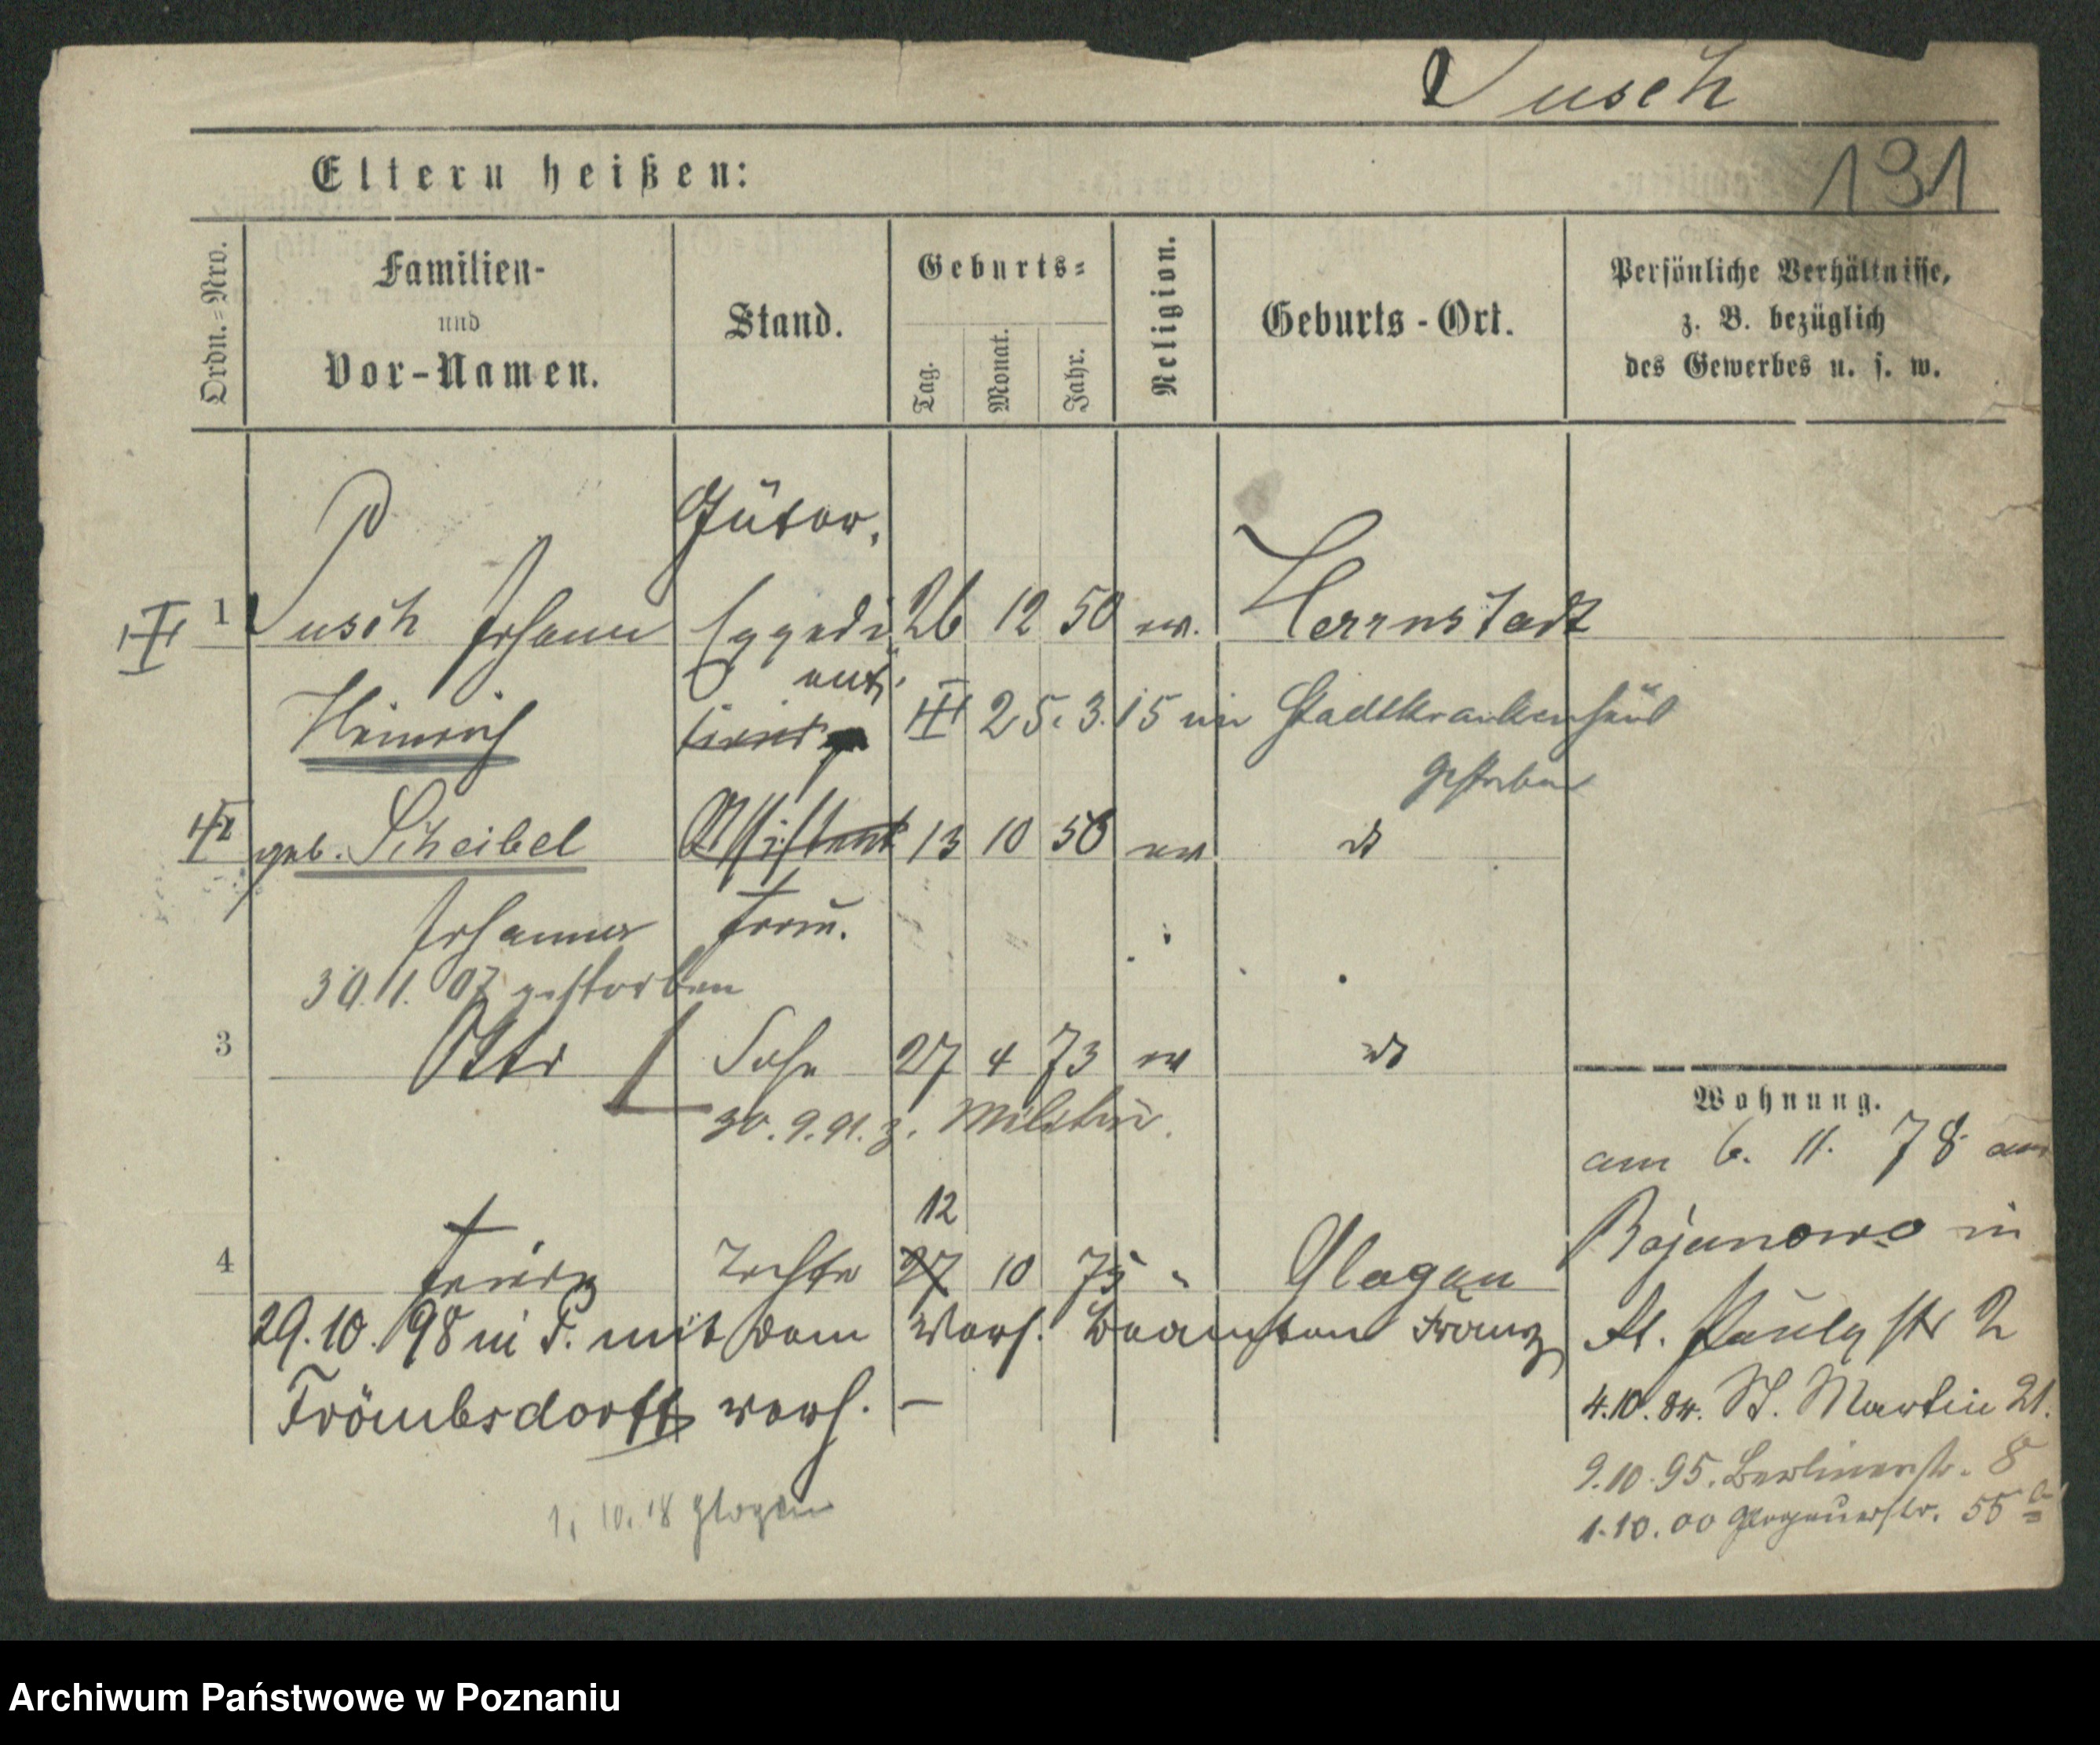 Pusch
131
Eltern heißen:
Ordn.=Nro.
Familien-
und
Vor-Namen.
Stand.
Geburts=
Tag.
Monat.
Jahr.
Religion.
Geburts-Ort.
Persönliche Verhältnisse,
z. B. bezüglich
des Gewerbes u. s. w.
Güter
1 Pusch Johann Expedi 26 12 50 ev. Herrnstadt
ent
Heinrich 25. 3. 15 im Stadtkrankenhaus
gestorben
geb. Scheibel Assistent 13 10 50 ev
Johanna Frau.
30.11.07 gestorben
3 Otto Sohn 27 4 73 ev
30.9.91. z. Militär.
Wohnung.
am 6. 11. 78 aus
12
Bojanowo in
4 Frieda Tochter 27 10 75 " Glogau
29.10.98 in P. mit dem Vers. Beamten Franz
St. Paulystr 2
Frömbsdorff verh. –
4.10.84. St. Martin 21.
9.10.95. Berlinerstr. 8
1.10.00 Glogauerstr. 55 a
1. 10. 18 Glogau
Archiwum Państwowe w Poznaniu